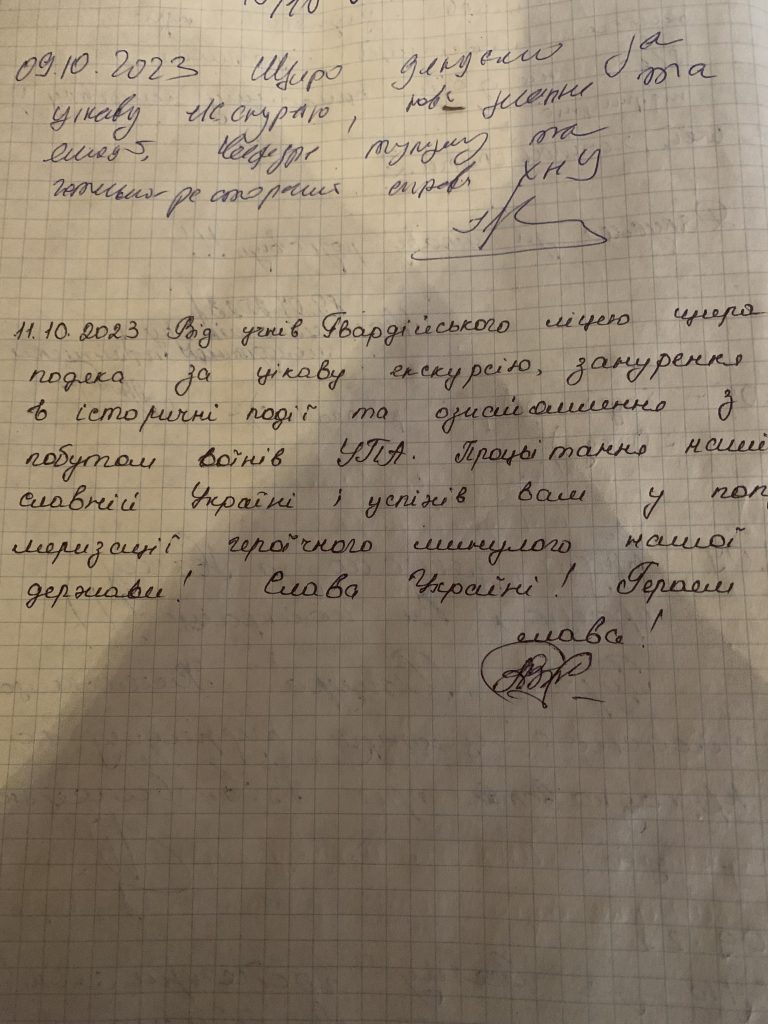 09.10.2023 Щиро дякуємо за
цікаву екскурсію, нові знання та
емоції. Кафедра туризму та
готельно-ресторанної справи ХНУ
11.10.2023 Від учнів Гвардійського ліцею щира
подяка за цікаву екскурсію, занурення
в історичні події та ознайомлення з
побутом воїнів УПА. Процвітання наші
славній Україні і успіхів вам у поп
меризації героїчного минулого нашої
держави! Слава Україні! Героям
слава!